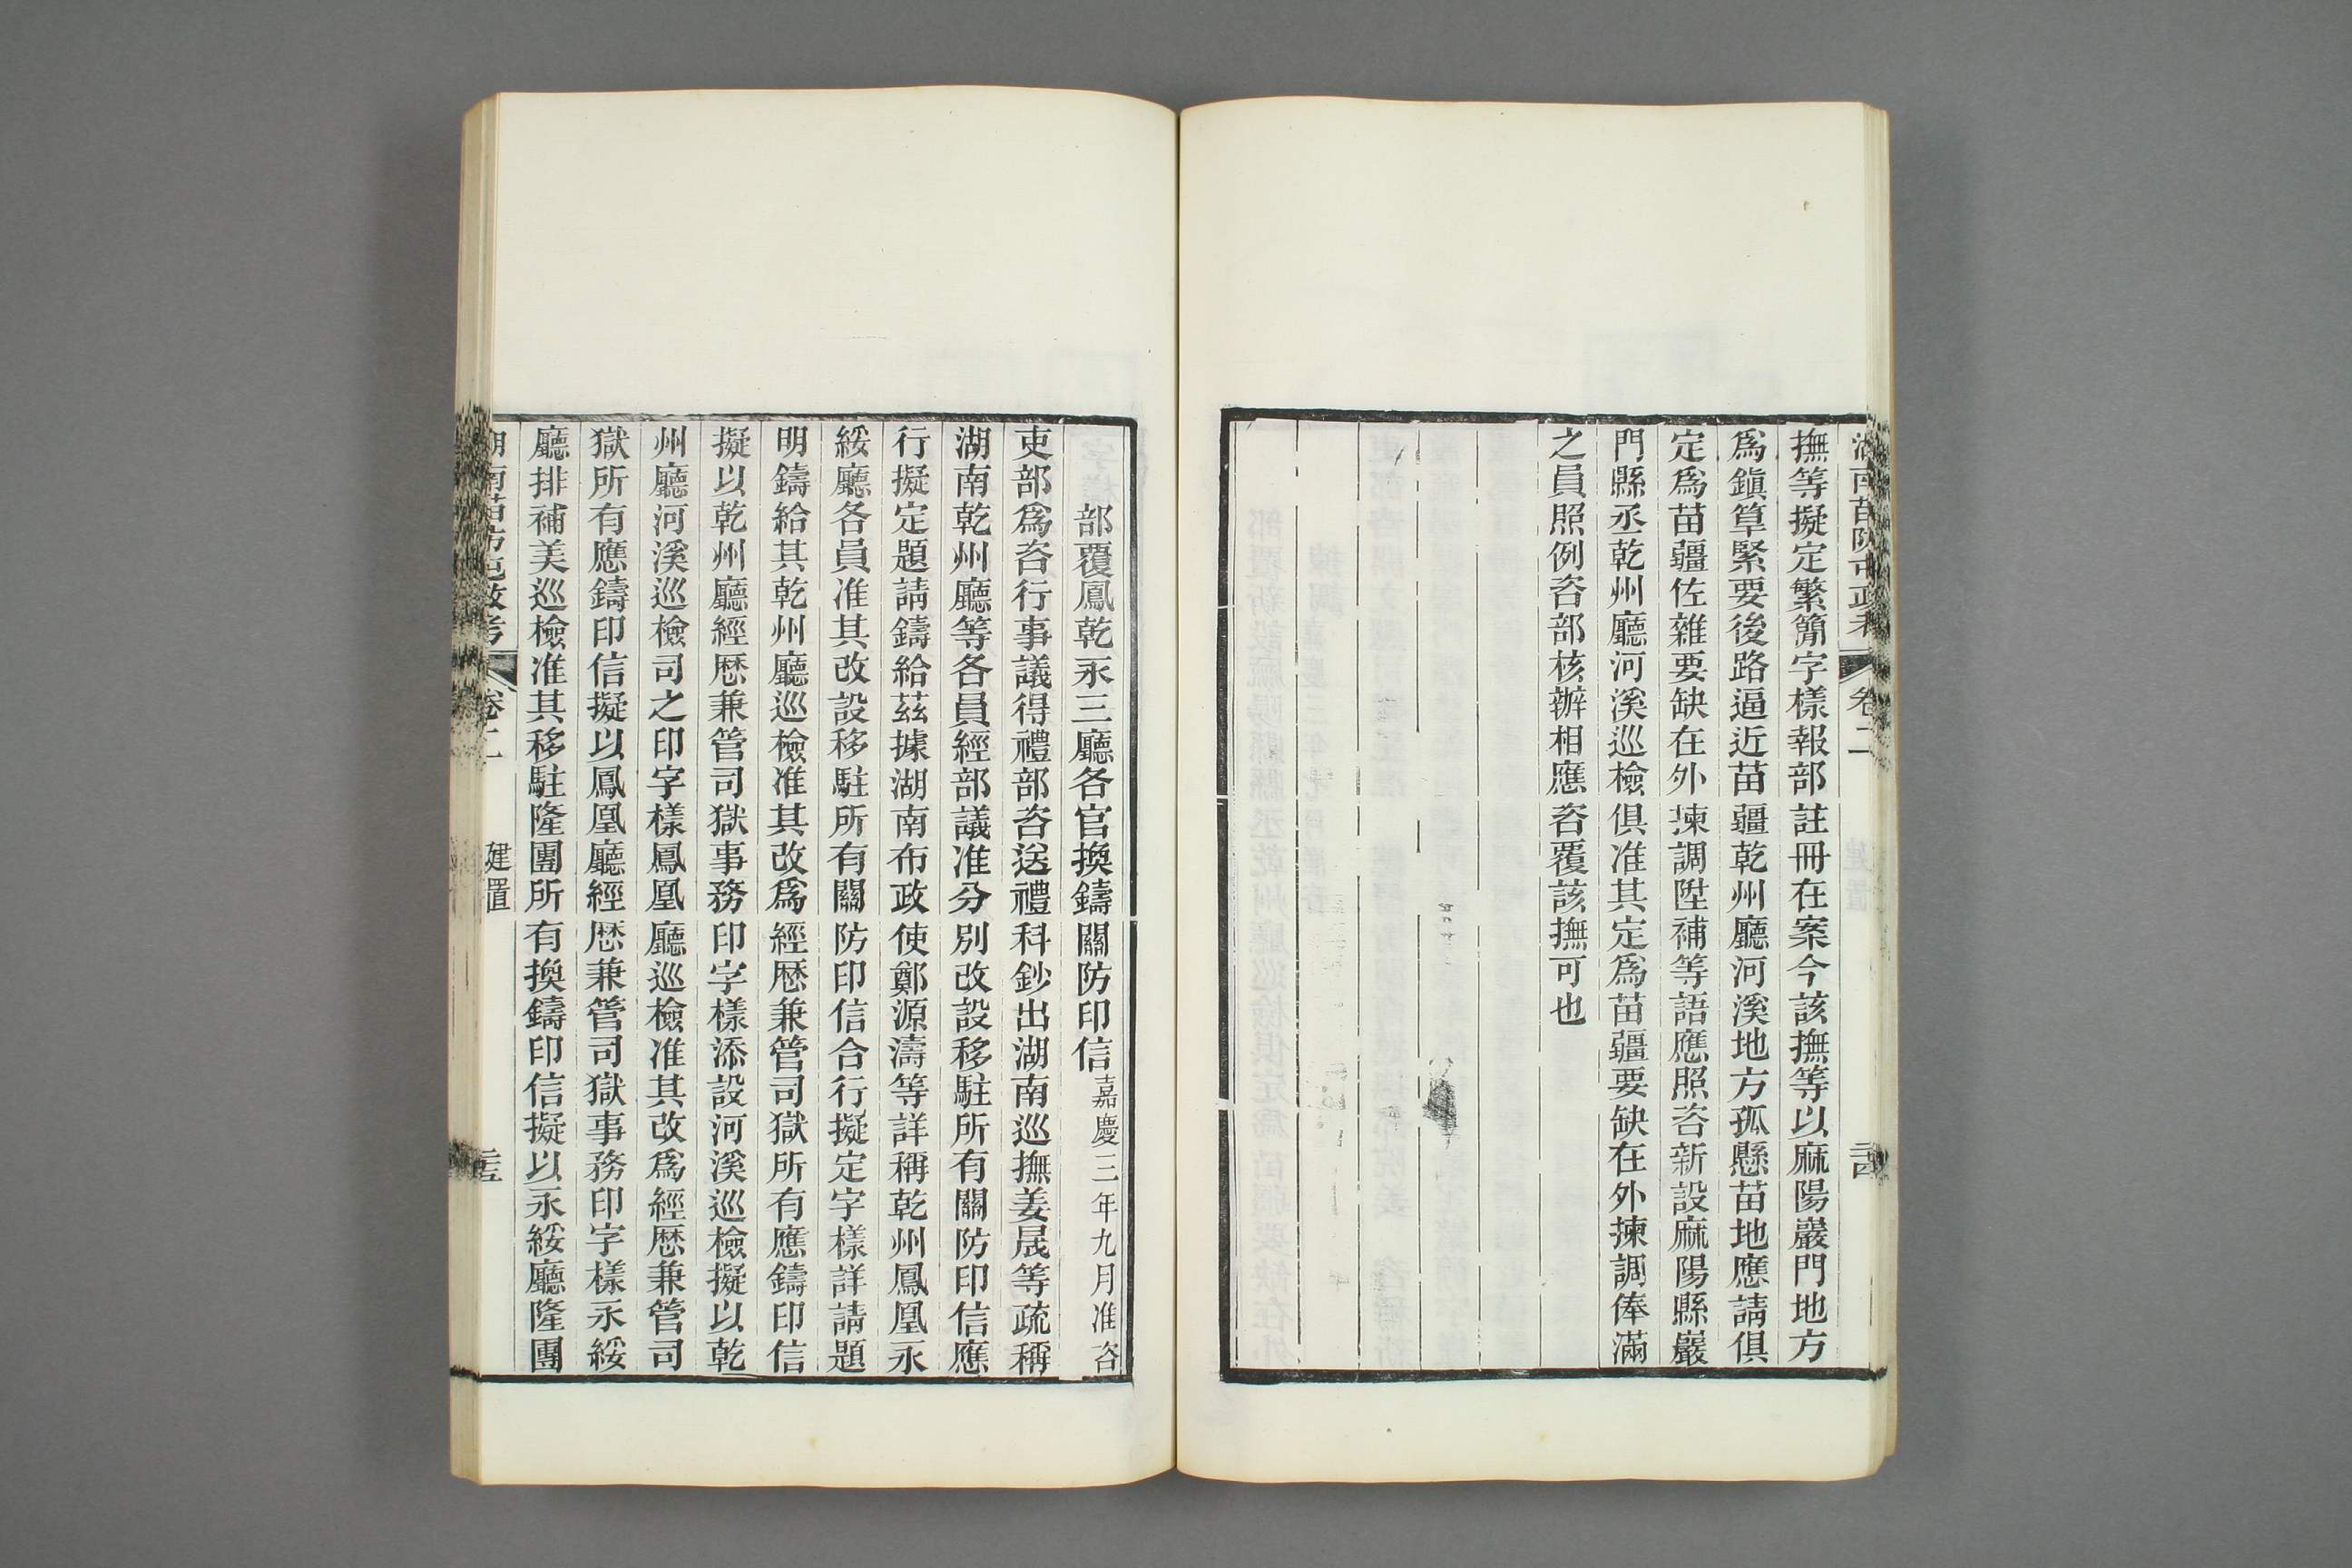 湖南苗防屯政考 卷二 建置 二十四
撫等擬定繁簡字樣報部註冊在案今該撫等以麻陽巖門地方
爲鎭筸緊要後路逼近苗疆乾州廳河溪地方孤懸苗地應請俱
定爲苗疆佐雜要缺在外揀調陞補等語應照咨新設麻陽縣巖
門縣丞乾州廳河溪巡檢俱准其定爲苗疆要缺在外揀調俸滿
之員照例咨部核辦相應咨覆該撫可也
部覆鳳乾永三廳各官換鑄關防印信嘉慶三年九月准咨
吏部爲咨行事議得禮部咨送禮科鈔出湖南巡撫姜晟等疏稱
湖南乾州廳等各員經部議准分別改設移駐所有關防印信應
行擬定題請鑄給茲據湖南布政使鄭源濤等詳稱乾州鳳凰永
綏廳各員准其改設移駐所有關防印信合行擬定字樣詳請題
明鑄給其乾州廳巡檢准其改爲經歷兼管司獄所有應鑄印信
擬以乾州廳經歷兼管司獄事務印字樣添設河溪巡檢擬以乾
州廳河溪巡檢司之印字樣鳳凰廳巡檢准其改爲經歷兼管司
獄所有應鑄印信擬以鳳凰廳經歷兼管司獄事務印字樣永綏
廳排補美巡檢准其移駐隆團所有換鑄印信擬以永綏廳隆團
湖南苗防屯政考 卷二 建置 二十五